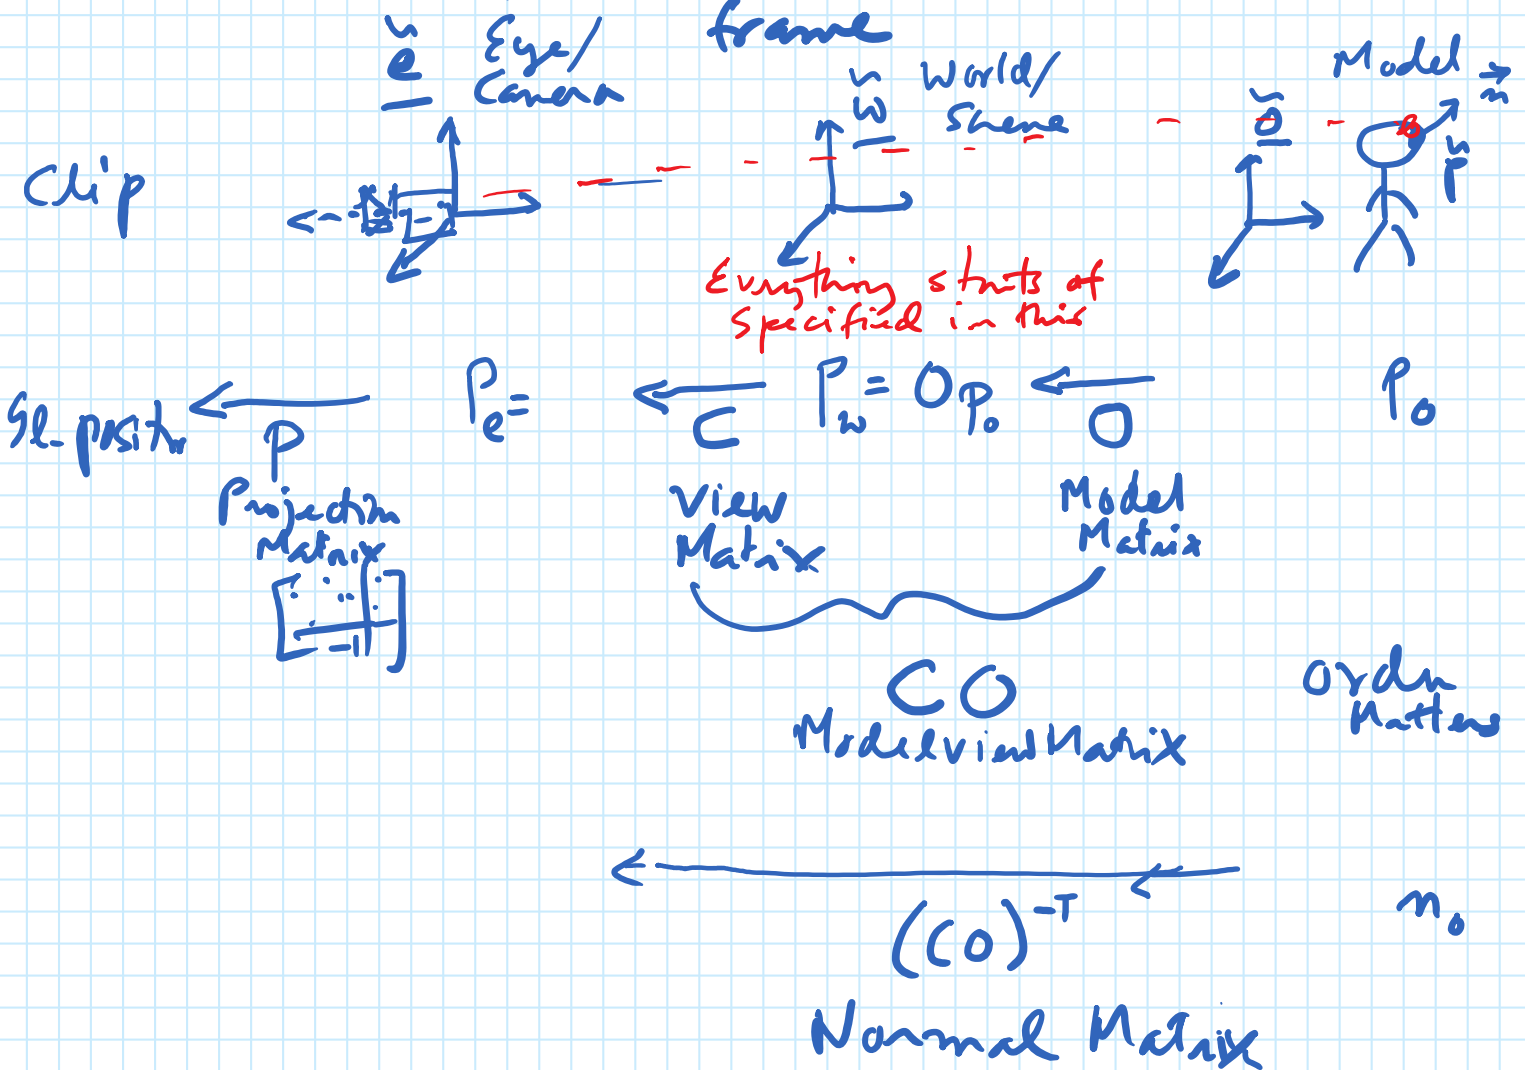 frame
e Eye/
Camera
w World/
Scene
o
Model
n
p
Clip
Everything starts of
specified in this
gl_position
P
Projection
Matrix
-1
Pe =
C
View
Matrix
Pw = O Po
O
Model
Matrix
Po
CO
ModelviewMatrix
Order
Matters
(CO)^-T
n_o
Normal Matrix